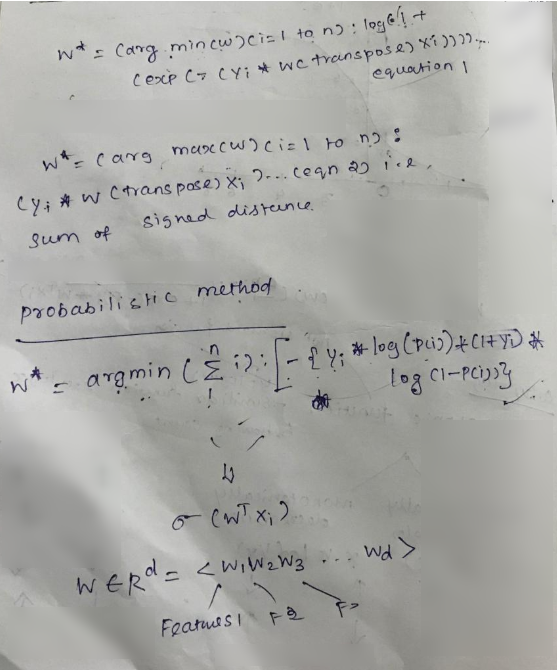 W* = (arg min(w)(i=1 to n) : log(1 +
(exp (- (Yi * W(transpose) Xi)))))...
equation 1
W* = (arg max(w)(i=1 to n) :
(Yi * W (transpose) Xi)... (eqn 2) i.e.
sum of signed distance.
probabilistic method
W* = argmin (Σ i): [- { Yi * log(p(i)) + (1+Yi) *
n
1
log (1-P(i))}
σ (Wᵀ Xi)
W ∈ Rᵈ = < W1 W2 W3 ... Wd >
Features1 F2